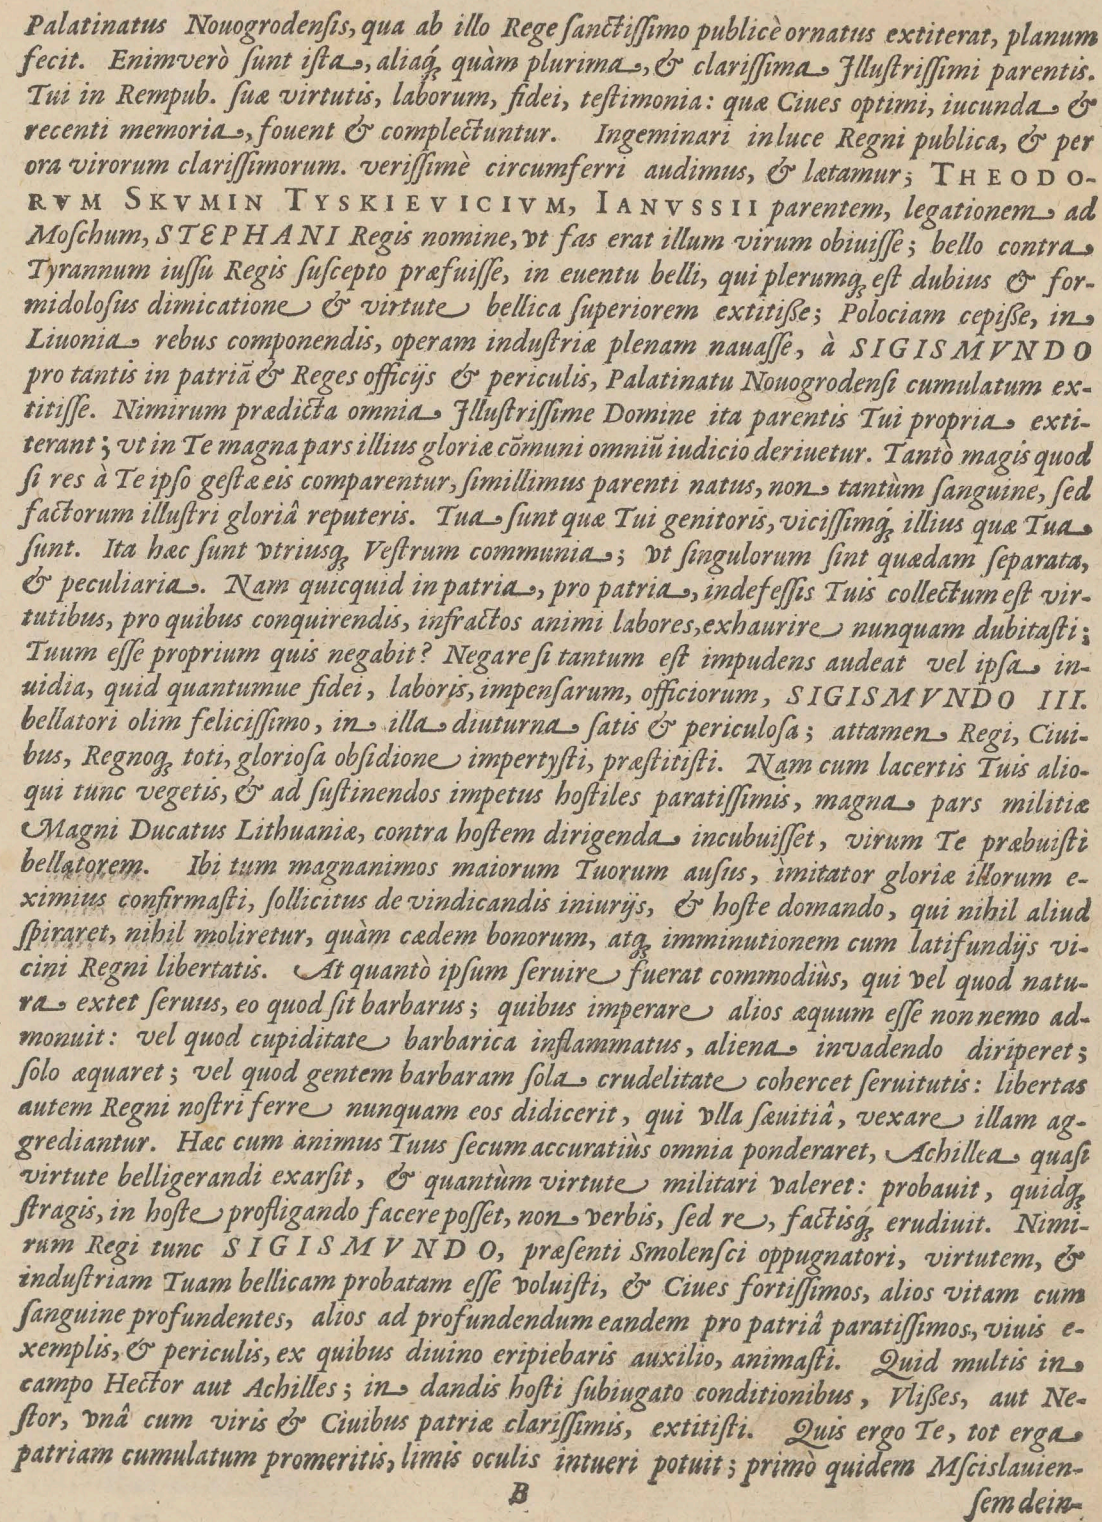 Palatinatus Nouogrodenſis, qua ab illo Rege ſanctiſſimo publicè ornatus extiterat, planum
fecit. Enimverò ſunt iſta, aliaq́; quàm plurima, & clariſſima Illuſtriſſimi parentis.
Tui in Rempub. ſuæ virtutis, laborum, fidei, teſtimonia: quæ Ciues optimi, iucunda &
recenti memoria, fouent & complectuntur. Ingeminari in luce Regni publica, & per
ora virorum clariſſimorum. veriſſimè circumferri audimus, & lætamur; THEODO-
RVM SKVMIN TYSKIEVICIVM, IANVSSII parentem, legationem ad
Moſchum, STEPHANI Regis nomine, vt fas erat illum virum obiuiſſe; bello contra
Tyrannum iuſſu Regis ſuſcepto præfuiſſe, in euentu belli, qui plerumq; eſt dubius & for-
midoloſus dimicatione & virtute bellica ſuperiorem extitiße; Polociam cepiße, in
Liuonia rebus componendis, operam induſtriæ plenam nauaſſe, à SIGISMVNDO
pro tantis in patriã & Reges officijs & periculis, Palatinatu Nouogrodenſi cumulatum ex-
titiſſe. Nimirum prædicta omnia Illuſtriſſime Domine ita parentis Tui propria exti-
terant; vt in Te magna pars illius gloriæ cõmuni omniũ iudicio deriuetur. Tantò magis quod
ſi res à Te ipſo geſtæ eis comparentur, ſimillimus parenti natus, non tantùm ſanguine, ſed
factorum illuſtri gloriâ reputeris. Tua ſunt quæ Tui genitoris, viciſſimq́; illius quæ Tua
ſunt. Ita hæc ſunt vtriusq; Veſtrum communia; vt ſingulorum ſint quædam ſeparata,
& peculiaria. Nam quicquid in patria, pro patria, indefeſſis Tuis collectum eſt vir-
tutibus, pro quibus conquirendis, infractos animi labores, exhaurire nunquam dubitaſti;
Tuum eſſe proprium quis negabit? Negare ſi tantum eſt impudens audeat vel ipſa in-
uidia, quid quantumue fidei, laboris, impenſarum, officiorum, SIGISMVNDO III.
bellatori olim feliciſſimo, in illa diuturna ſatis & periculoſa; attamen Regi, Ciui-
bus, Regnoq; toti, glorioſa obſidione impertyſti, præſtitiſti. Nam cum lacertis Tuis alio-
qui tunc vegetis, & ad ſuſtinendos impetus hoſtiles paratiſſimis, magna pars militiæ
Magni Ducatus Lithuaniæ, contra hoſtem dirigenda incubuiſſet, virum Te præbuiſti
bellatorem. Ibi tum magnanimos maiorum Tuorum auſus, imitator gloriæ illorum e-
ximius confirmaſti, ſollicitus de vindicandis iniurijs, & hoſte domando, qui nihil aliud
ſpiraret, nihil moliretur, quàm cædem bonorum, atq; imminutionem cum latifundijs vi-
cini Regni libertatis. At quantò ipſum ſeruire fuerat commodiùs, qui vel quod natu-
ra extet ſeruus, eo quod ſit barbarus; quibus imperare alios æquum eſſe non nemo ad-
monuit: vel quod cupiditate barbarica inflammatus, aliena invadendo diriperet;
ſolo æquaret; vel quod gentem barbaram ſola crudelitate cohercet ſeruitutis: libertas
autem Regni noſtri ferre nunquam eos didicerit, qui vlla ſæuitiâ, vexare illam ag-
grediantur. Hæc cum animus Tuus ſecum accuratiùs omnia ponderaret, Achillea quaſi
virtute belligerandi exarſit, & quantùm virtute militari valeret: probauit, quidq;
ſtragis, in hoſte profligando facere poſſet, non verbis, ſed re, factisq́; erudiuit. Nimi-
rum Regi tunc SIGISMVNDO, præſenti Smolenſci oppugnatori, virtutem, &
induſtriam Tuam bellicam probatam eſſe voluiſti, & Ciues fortiſſimos, alios vitam cum
ſanguine profundentes, alios ad profundendum eandem pro patriâ paratiſſimos, viuis e-
xemplis, & periculis, ex quibus diuino eripiebaris auxilio, animaſti. Quid multis in
campo Hector aut Achilles; in dandis hoſti ſubiugato conditionibus, Vlißes, aut Ne-
ſtor, vnâ cum viris & Ciuibus patriæ clariſſimis, extitiſti. Quis ergo Te, tot erga
patriam cumulatum promeritis, limis oculis intueri potuit; primò quidem Mſcislauien-
B
ſem dein-